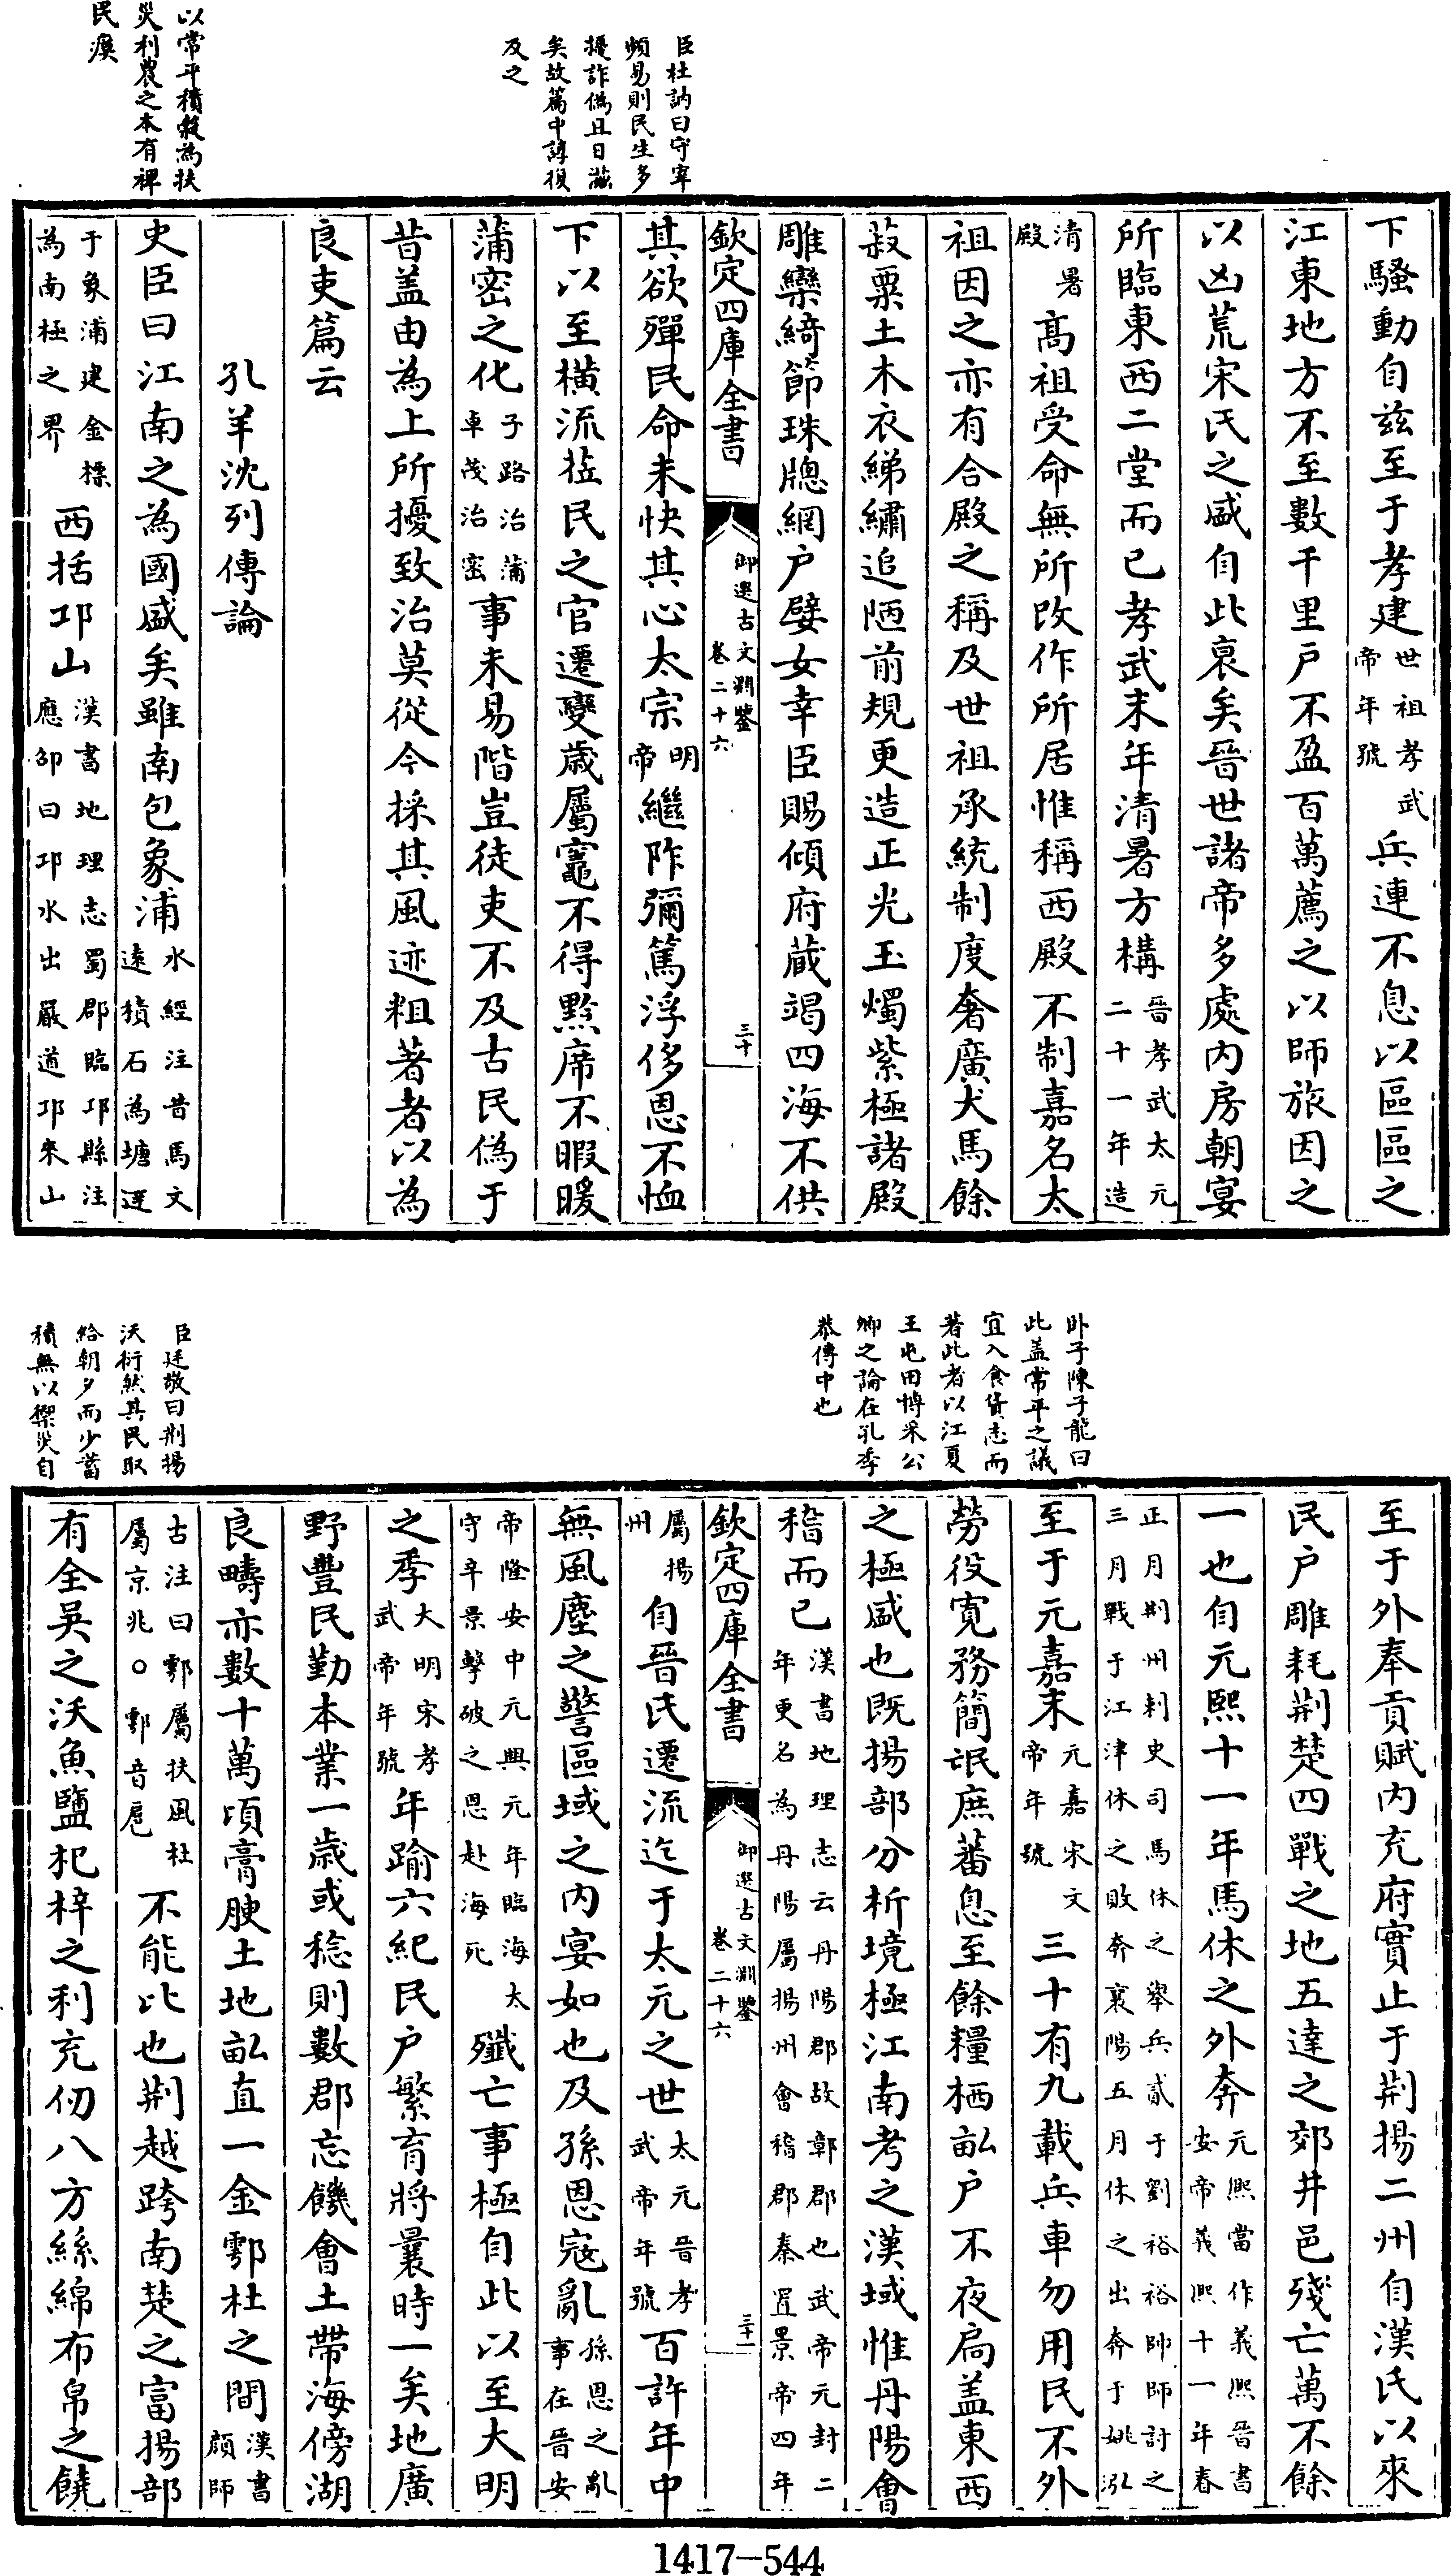 臣杜訥曰守宰
頻易則民生多
擾詐偽且日滋
矣故篇中諄復
及之
以常平積穀為扶
災利農之本有裨
民瘼
下騷動自兹至于孝建世祖孝武帝年號兵連不息以區區之
江東地方不至數千里戶不盈百萬薦之以師旅因之
以凶荒宋氏之盛自此衰矣晉世諸帝多處内房朝宴
所臨東西二堂而已孝武末年清暑方構晉孝武太元二十一年造
清暑殿高祖受命無所改作所居惟稱西殿不制嘉名太
祖因之亦有合殿之稱及世祖承統制度奢廣犬馬餘
菽粟土木衣綈繡追陋前規更造正光玉燭紫極諸殿
雕欒綺節珠牕網户嬖女幸臣賜傾府藏竭四海不供
欽定四庫全書
御選古文淵鑒
卷二十六
三十
其欲殫民命未快其心太宗明帝繼阼彌篤浮侈恩不恤
下以至橫流莅民之官遷變歲屬竈不得黔席不暇暖
蒲密之化子路治蒲卓茂治密事未易階豈徒吏不及古民偽于
昔盖由為上所擾致治莫從今採其風迹粗著者以為
良吏篇云
孔羊沈列傳論
史臣曰江南之為國盛矣雖南包象浦水經注昔馬文遠積石為塘逕
于象浦建金標為南極之界西括邛山漢書地理志蜀郡臨邛縣注應劭曰邛水出嚴道邛來山
卧子陳子龍曰
此盖常平之議
宜入食貨志而
著此者以江夏
王屯田博采公
卿之論在孔季
恭傳中也
臣廷敬曰荆揚
沃衍然其民取
給朝夕而少蓄
積無以禦災自
至于外奉貢賦内充府實止于荆揚二州自漢氏以來
民户雕耗荆楚四戰之地五達之郊井邑殘亡萬不餘
一也自元熙十一年馬休之外奔元熙當作義熙晉書安帝義熙十一年春
正月荆州刺史司馬休之舉兵貳于劉裕裕帥師討之三月戰于江津休之敗奔襄陽五月休之出奔于姚泓
至于元嘉末元嘉宋文帝年號三十有九載兵車勿用民不外
勞役寛務簡氓庶蕃息至餘糧栖畝户不夜扃盖東西
之極盛也既揚部分析境極江南考之漢域惟丹陽會
稽而已漢書地理志云丹陽郡故鄣郡也武帝元封二年更名為丹陽屬揚州會稽郡秦置景帝四年
欽定四庫全書
御選古文淵鑒
卷二十六
三十一
屬揚州自晉氏遷流迄于太元之世太元晉孝武帝年號百許年中
無風塵之警區域之内宴如也及孫恩寇亂孫恩之亂事在晉安
帝隆安中元興元年臨海太守辛景擊破之恩赴海死殲亡事極自此以至大明
之季大明宋孝武帝年號年踰六紀民户繁育將曩時一矣地廣
野豐民勤本業一歲或稔則數郡忘饑會土帶海傍湖
良疇亦數十萬頃膏腴土地畝直一金鄠杜之間漢書顔師
古注曰鄠屬扶風杜屬京兆○鄠音扈不能比也荆越跨南楚之富揚部
有全吳之沃魚鹽杞梓之利充仞八方絲綿布帛之饒
1417-544